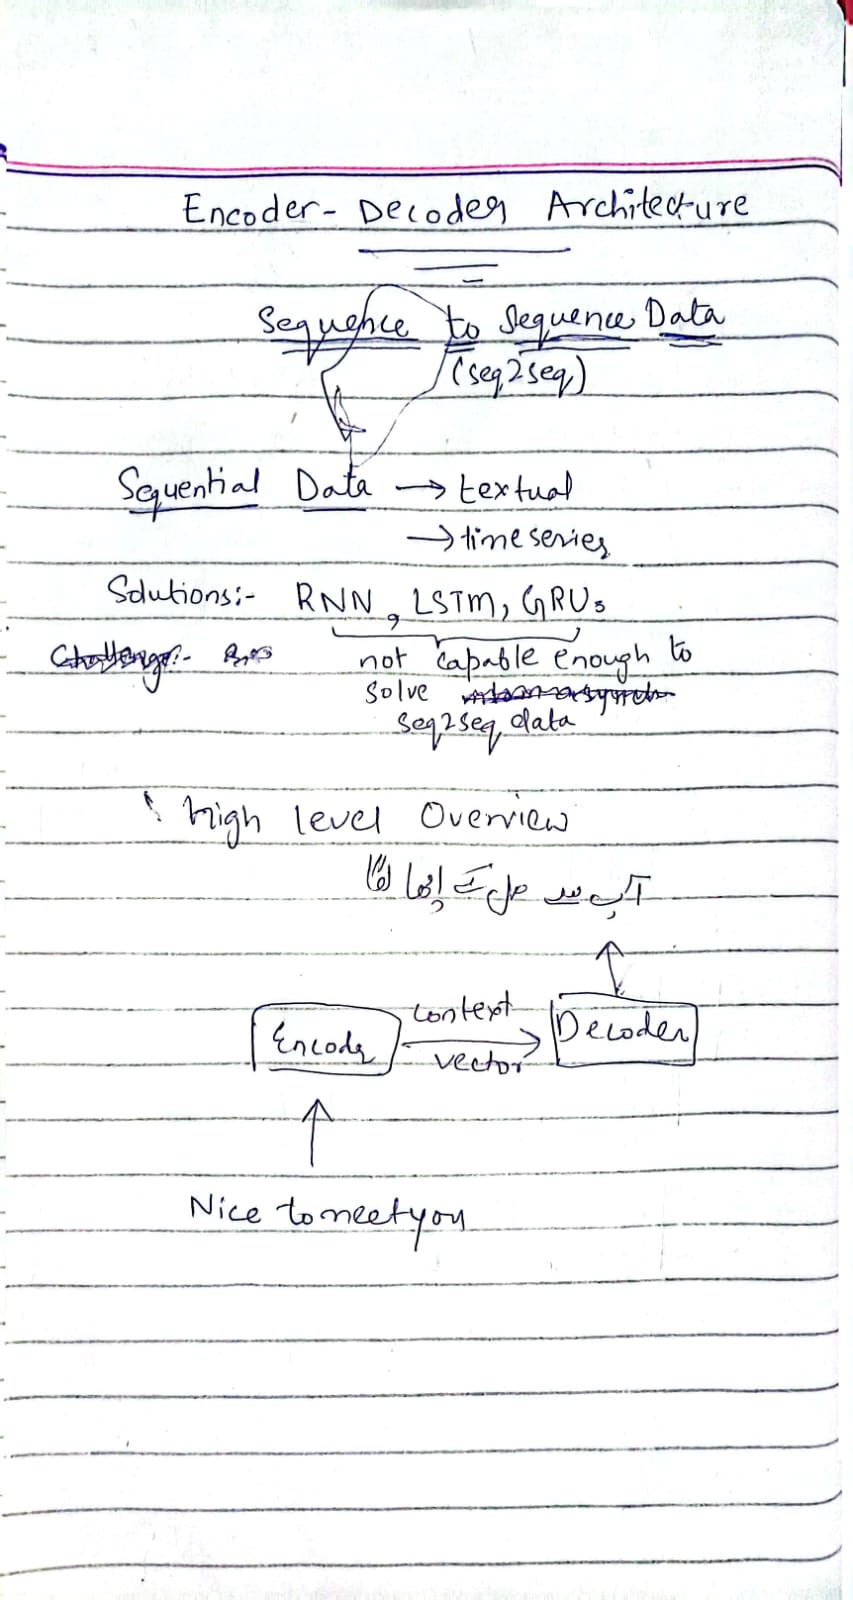 Encoder - Decoder Architecture
Sequence to Sequence Data
(seq2seq)
Sequential Data → textual
→ time series
Solutions:- RNN, LSTM, GRUs
Challenge:-
not capable enough to
solve
seq2seq data
high level Overview
آپ سے مل کے اچھا لگا
context
Encoder
Decoder
vector
Nice to meet you